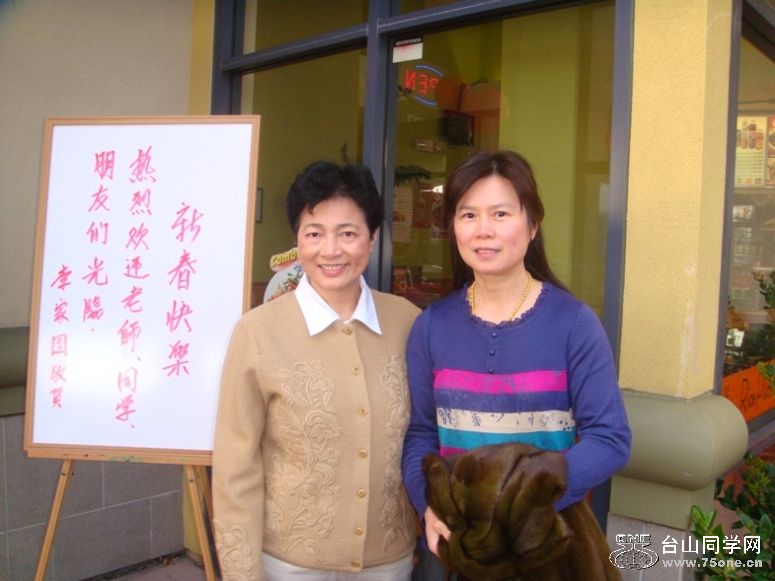 新春快樂
热烈欢迎老師、同学、
朋友们光臨.
李家国敬賀
OPEN
Combo
台山同学网
www.75one.cn